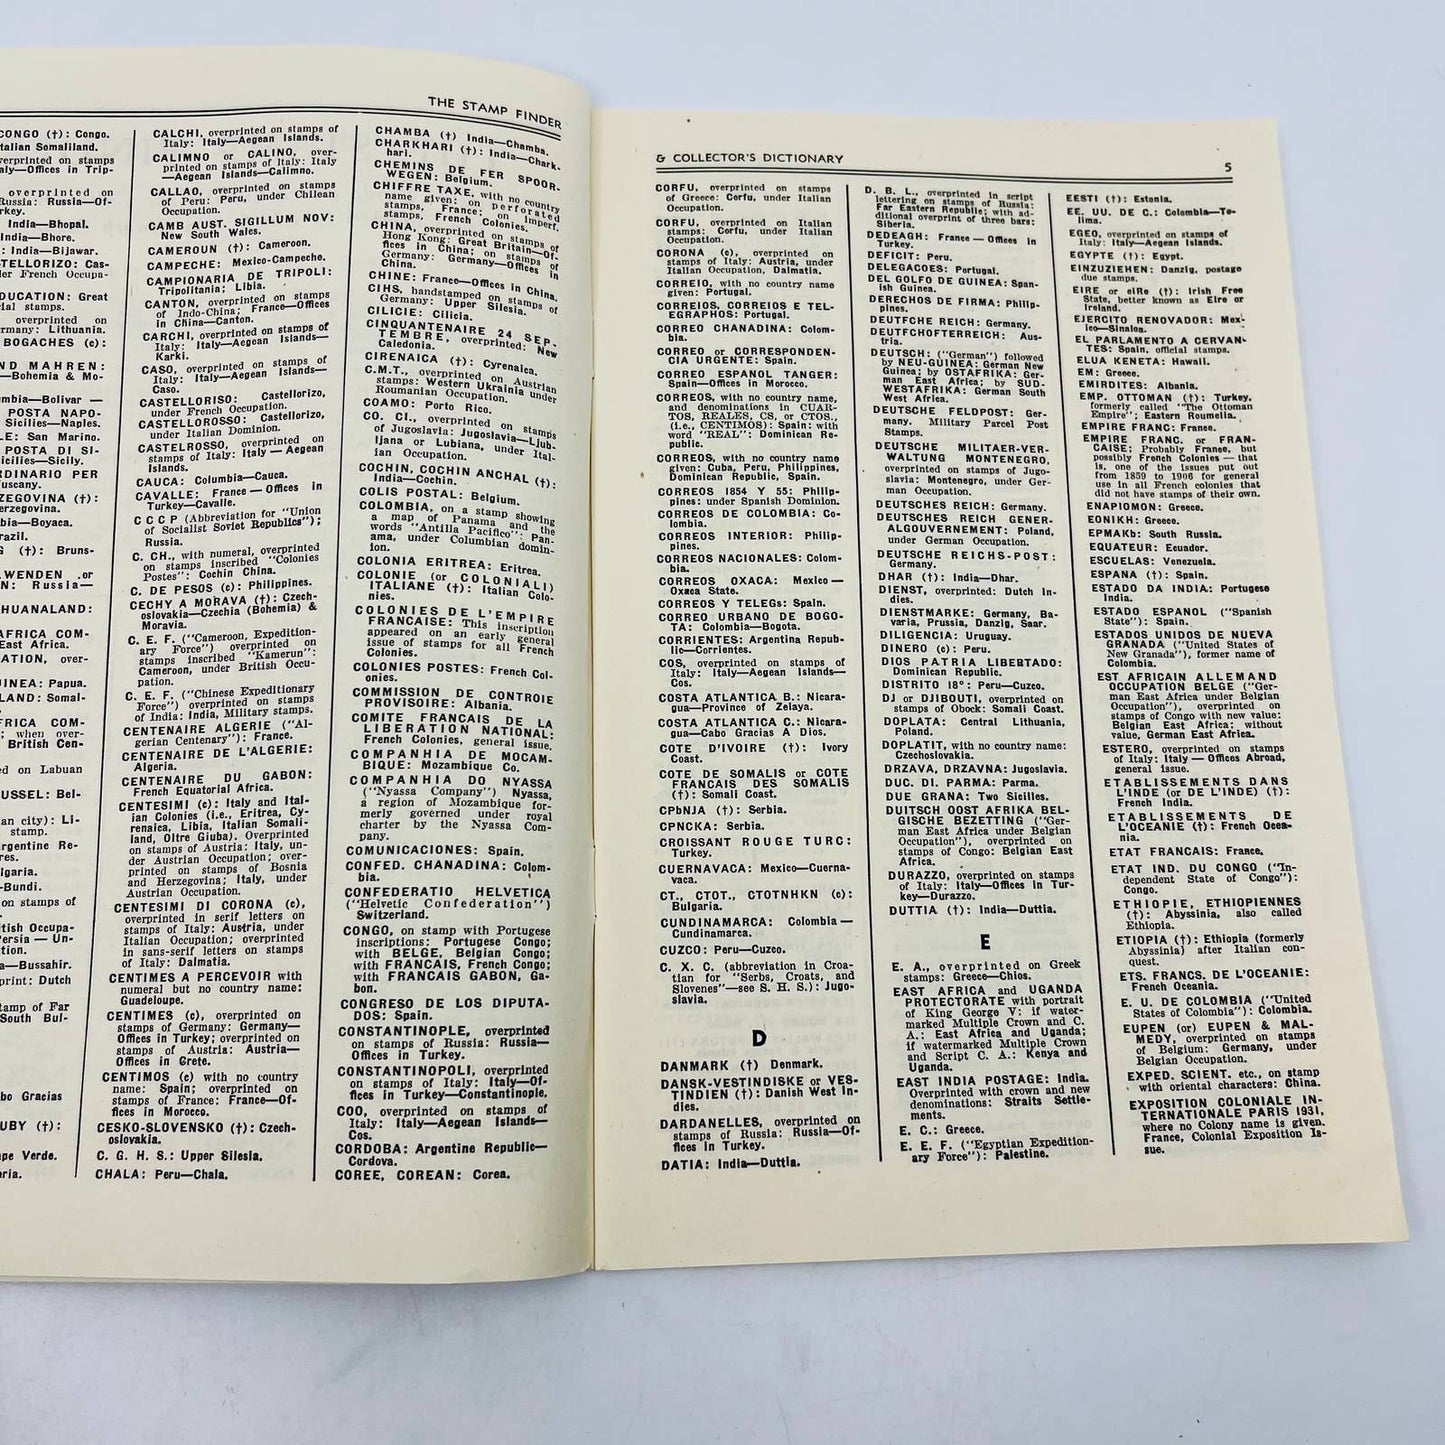 THE STAMP FINDER
CONGO (†): Congo.
talian Somaliland.
verprinted on stamps
aly—Offices in Trip-
overprinted on
Russia: Russia—Of-
rkey.
India—Bhopal.
India—Bhore.
: India—Bijawar.
STELLORIZO: Cas-
der French Occupa-
DUCATION: Great
ial stamps.
overprinted on
rmany: Lithuania.
BOGACHES (c):
ND MAHREN:
—Bohemia & Mo-
mbia—Bolivar —
POSTA NAPO-
Sicilies—Naples.
LE: San Marino.
POSTA DI SI-
icilies—Sicily.
RDINARIO PER
uscany.
ZEGOVINA (†):
erzegovina.
bia—Boyaca.
razil.
G (†): Bruns-
WENDEN or
N: Russia—
HUANALAND:
AFRICA COM-
East Africa.
ATION, over-
INEA: Papua.
LAND: Somal-
FRICA COM-
; when over-
British Cen-
ed on Labuan
USSEL: Bel-
an city): Li-
stamp.
rgentine Re-
res.
lgaria.
—Bundi.
on stamps of
itish Occupa-
ersia — Un-
tion.
a—Bussahir.
print: Dutch
tamp of Far
South Bul-
bo Gracias
UBY (†):
pe Verde.
ria.
CALCHI, overprinted on stamps of
Italy: Italy—Aegean Islands.
CALIMNO or CALINO, over-
printed on stamps of Italy: Italy
—Aegean Islands—Calimno.
CALLAO, overprinted on stamps
of Peru: Peru, under Chilean
Occupation.
CAMB AUST. SIGILLUM NOV:
New South Wales.
CAMEROUN (†): Cameroon.
CAMPECHE: Mexico-Campeche.
CAMPIONARIA DE TRIPOLI:
Tripolitania: Libia.
CANTON, overprinted on stamps
of Indo-China: France—Offices
in China—Canton.
CARCHI, overprinted on stamps of
Italy: Italy—Aegean Islands—
Karki.
CASO, overprinted on stamps of
Italy: Italy—Aegean Islands—
Caso.
CASTELLORISO: Castellorizo,
under French Occupation.
CASTELLOROSSO: Castellorizo,
under Italian Dominion.
CASTELROSSO, overprinted on
stamps of Italy: Italy — Aegean
Islands.
CAUCA: Columbia—Cauca.
CAVALLE: France — Offices in
Turkey—Cavalle.
C C C P (Abbreviation for "Union
of Socialist Soviet Republics");
Russia.
C. CH., with numeral, overprinted
on stamps inscribed "Colonies
Postes": Cochin China.
C. DE PESOS (c): Philippines.
CECHY A MORAVA (†): Czech-
oslovakia—Czechia (Bohemia) &
Moravia.
C. E. F. ("Cameroon, Expedition-
ary Force") overprinted on
stamps inscribed "Kamerun":
Cameroon, under British Occu-
pation.
C. E. F. ("Chinese Expeditionary
Force") overprinted on stamps
of India: India, Military stamps.
CENTENAIRE ALGERIE ("Al-
gerian Centenary"): France.
CENTENAIRE DE L'ALGERIE:
Algeria.
CENTENAIRE DU GABON:
French Equatorial Africa.
CENTESIMI (c): Italy and Ital-
ian Colonies (i.e., Eritrea, Cy-
renaica, Libia, Italian Somali-
land, Oltre Giuba). Overprinted
on stamps of Austria: Italy, un-
der Austrian Occupation; over-
printed on stamps of Bosnia
and Herzegovina; Italy, under
Austrian Occupation.
CENTESIMI DI CORONA (c),
overprinted in serif letters on
stamps of Italy: Austria, under
Italian Occupation; overprinted
in sans-serif letters on stamps
of Italy: Dalmatia.
CENTIMES A PERCEVOIR with
numeral but no country name:
Guadeloupe.
CENTIMES (c), overprinted on
stamps of Germany: Germany—
Offices in Turkey; overprinted on
stamps of Austria: Austria—
Offices in Crete.
CENTIMOS (c) with no country
name: Spain; overprinted on
stamps of France: France—Of-
fices in Morocco.
CESKO-SLOVENSKO (†): Czech-
oslovakia.
C. G. H. S.: Upper Silesia.
CHALA: Peru—Chala.
CHAMBA (†) India—Chamba.
CHARKHARI (†): India—Chark-
hari.
CHEMINS DE FER SPOOR-
WEGEN: Belgium.
CHIFFRE TAXE, with no country
name given: on perforated
stamps, France; on imperf.
stamps, French Colonies.
CHINA, overprinted on stamps of
Hong Kong: Great Britain—Of-
fices in China; on stamps of
Germany: Germany—Offices in
China.
CHINE: France—Offices in China.
CIHS, handstamped on stamps of
Germany: Upper Silesia.
CILICIE: Cilicia.
CINQUANTENAIRE 24 SEP-
TEMBRE, overprinted: New
Caledonia.
CIRENAICA (†): Cyrenaica.
C.M.T., overprinted on Austrian
stamps: Western Ukrainia under
Roumanian Occupation.
COAMO: Porto Rico.
CO. CI., overprinted on stamps
of Jugoslavia: Jugoslavia—Ljub-
ljana or Lubiana, under Ital-
ian Occupation.
COCHIN, COCHIN ANCHAL (†):
India—Cochin.
COLIS POSTAL: Belgium.
COLOMBIA, on a stamp showing
a map of Panama and the
words "Antilla Pacifico": Pan-
ama, under Columbian domin-
ion.
COLONIA ERITREA: Eritrea.
COLONIE (or COLONIALI)
ITALIANE (†): Italian Colo-
nies.
COLONIES DE L'EMPIRE
FRANCAISE: This inscription
appeared on an early general
issue of stamps for all French
Colonies.
COLONIES POSTES: French Col-
onies.
COMMISSION DE CONTROIE
PROVISOIRE: Albania.
COMITE FRANCAIS DE LA
LIBERATION NATIONAL:
French Colonies, general issue.
COMPANHIA DE MOCAM-
BIQUE: Mozambique Co.
COMPANHIA DO NYASSA
("Nyassa Company") Nyassa,
a region of Mozambique for-
merly governed under royal
charter by the Nyassa Com-
pany.
COMUNICACIONES: Spain.
CONFED. CHANADINA: Colom-
bia.
CONFEDERATIO HELVETICA
("Helvetic Confederation")
Switzerland.
CONGO, on stamp with Portugese
inscriptions: Portugese Congo;
with BELGE, Belgian Congo;
with FRANCAIS, French Congo;
with FRANCAIS GABON, Ga-
bon.
CONGRESO DE LOS DIPUTA-
DOS: Spain.
CONSTANTINOPLE, overprinted
on stamps of Russia: Russia—
Offices in Turkey.
CONSTANTINOPOLI, overprinted
on stamps of Italy: Italy—Of-
fices in Turkey—Constantinople.
COO, overprinted on stamps of
Italy: Italy—Aegean Islands—
Cos.
CORDOBA: Argentine Republic—
Cordova.
COREE, COREAN: Corea.
& COLLECTOR'S DICTIONARY
5
CORFU, overprinted on stamps
of Greece: Corfu, under Italian
Occupation.
CORFU, overprinted on Italian
stamps: Corfu, under Italian
Occupation.
CORONA (c), overprinted on
stamps of Italy: Austria, under
Italian Occupation, Dalmatia.
CORREIO, with no country name
given: Portugal.
CORREIOS, CORREIOS E TEL-
EGRAPHOS: Portugal.
CORREO CHANADINA: Colom-
bia.
CORREO or CORRESPONDEN-
CIA URGENTE: Spain.
CORREO ESPANOL TANGER:
Spain—Offices in Morocco.
CORREOS, with no country name,
and denominations in CUAR-
TOS, REALES, CS, or CTOS.,
(i.e., CENTIMOS): Spain: with
word "REAL": Dominican Re-
public.
CORREOS, with no country name
given: Cuba, Peru, Philippines,
Dominican Republic, Spain.
CORREOS 1854 Y 55: Philip-
pines: under Spanish Dominion.
CORREOS DE COLOMBIA: Co-
lombia.
CORREOS INTERIOR: Philip-
pines.
CORREOS NACIONALES: Colom-
bia.
CORREOS OXACA: Mexico —
Oxaca State.
CORREOS Y TELEGs: Spain.
CORREO URBANO DE BOGO-
TA: Colombia—Bogota.
CORRIENTES: Argentina Repub-
lic—Corrientes.
COS, overprinted on stamps of
Italy: Italy—Aegean Islands—
Cos.
COSTA ATLANTICA B.: Nicara-
gua—Province of Zelaya.
COSTA ATLANTICA C.: Nicara-
gua—Cabo Gracias A Dios.
COTE D'IVOIRE (†): Ivory
Coast.
COTE DE SOMALIS or COTE
FRANCAIS DES SOMALIS
(†): Somali Coast.
CPbNJA (†): Serbia.
CPNCKA: Serbia.
CROISSANT ROUGE TURC:
Turkey.
CUERNAVACA: Mexico—Cuerna-
vaca.
CT., CTOT., CTOTNHKN (c):
Bulgaria.
CUNDINAMARCA: Colombia —
Cundinamarca.
CUZCO: Peru—Cuzco.
C. X. C. (abbreviation in Croa-
tian for "Serbs, Croats, and
Slovenes"—see S. H. S.): Jugo-
slavia.
D
DANMARK (†) Denmark.
DANSK-VESTINDISKE or VES-
TINDIEN (†): Danish West In-
dies.
DARDANELLES, overprinted on
stamps of Russia: Russia—Of-
fices in Turkey.
DATIA: India—Duttia.
D. B. L., overprinted in script
lettering on stamps of Russia:
Far Eastern Republic; with ad-
ditional overprint of three bars:
Siberia.
DEDEAGH: France — Offices in
Turkey.
DEFICIT: Peru.
DELEGACOES: Portugal.
DEL GOLFO DE GUINEA: Span-
ish Guinea.
DERECHOS DE FIRMA: Philip-
pines.
DEUTFCHE REICH: Germany.
DEUTFCHOFTERREICH: Aus-
tria.
DEUTSCH: ("German") followed
by NEU-GUINEA: German New
Guinea; by OSTAFRIKA: Ger-
man East Africa; by SUD-
WESTAFRIKA: German South
West Africa.
DEUTSCHE FELDPOST: Ger-
many. Military Parcel Post
Stamps.
DEUTSCHE MILITAER-VER-
WALTUNG MONTENEGRO,
overprinted on stamps of Jugo-
slavia: Montenegro, under Ger-
man Occupation.
DEUTSCHES REICH: Germany.
DEUTSCHES REICH GENER-
ALGOUVERNEMENT: Poland,
under German Occupation.
DEUTSCHE REICHS-POST:
Germany.
DHAR (†): India—Dhar.
DIENST, overprinted: Dutch In-
dies.
DIENSTMARKE: Germany, Ba-
varia, Prussia, Danzig, Saar.
DILIGENCIA: Uruguay.
DINERO (c): Peru.
DIOS PATRIA LIBERTADO:
Dominican Republic.
DISTRITO 18°: Peru—Cuzco.
DJ or DJIBOUTI, overprinted on
stamps of Obock: Somali Coast.
DOPLATA: Central Lithuania,
Poland.
DOPLATIT, with no country name:
Czechoslovakia.
DRZAVA, DRZAVNA: Jugoslavia.
DUC. DI. PARMA: Parma.
DUE GRANA: Two Sicilies.
DUITSCH OOST AFRIKA BEL-
GISCHE BEZETTING ("Ger-
man East Africa under Belgian
Occupation"), overprinted on
stamps of Congo: Belgian East
Africa.
DURAZZO, overprinted on stamps
of Italy: Italy—Offices in Tur-
key—Durazzo.
DUTTIA (†): India—Duttia.
E
E. A., overprinted on Greek
stamps: Greece—Chios.
EAST AFRICA and UGANDA
PROTECTORATE with portrait
of King George V: if water-
marked Multiple Crown and C.
A.: East Africa and Uganda;
if watermarked Multiple Crown
and Script C. A.: Kenya and
Uganda.
EAST INDIA POSTAGE: India.
Overprinted with crown and new
denominations: Straits Settle-
ments.
E. C.: Greece.
E. E. F. ("Egyptian Expedition-
ary Force"): Palestine.
EESTI (†): Estania.
EE. UU. DE C.: Colombia—To-
lima.
EGEO, overprinted on stamps of
Italy: Italy—Aegean Islands.
EGYPTE (†): Egypt.
EINZUZIEHEN: Danzig, postage
due stamps.
EIRE or eIRe (†): Irish Free
State, better known as Eire or
Ireland.
EJERCITO RENOVADOR: Mex-
ico—Sinaloa.
EL PARLAMENTO A CERVAN-
TES: Spain, official stamps.
ELUA KENETA: Hawaii.
EM: Greece.
EMIRDITES: Albania.
EMP. OTTOMAN (†): Turkey,
formerly called "The Ottoman
Empire"; Eastern Roumelia.
EMPIRE FRANC: France.
EMPIRE FRANC. or FRAN-
CAISE; Probably France, but
possibly French Colonies — that
is, one of the issues put out
from 1859 to 1906 for general
use in all French colonies that
did not have stamps of their own.
ENAPIOMON: Greece.
EONIKH: Greece.
EPMAKb: South Russia.
EQUATEUR: Ecuador.
ESCUELAS: Venezuela.
ESPANA (†): Spain.
ESTADO DA INDIA: Portugese
India.
ESTADO ESPANOL ("Spanish
State"): Spain.
ESTADOS UNIDOS DE NUEVA
GRANADA ("United States of
New Granada"), former name of
Colombia.
EST AFRICAIN ALLEMAND
OCCUPATION BELGE ("Ger-
man East Africa under Belgian
Occupation"), overprinted on
stamps of Congo with new value:
Belgian East Africa; without
value, German East Africa.
ESTERO, overprinted on stamps
of Italy: Italy — Offices Abroad,
general issue.
ETABLISSEMENTS DANS
L'INDE (or DE L'INDE) (†):
French India.
ETABLISSEMENTS DE
L'OCEANIE (†): French Ocea-
nia.
ETAT FRANCAIS: France.
ETAT IND. DU CONGO ("In-
dependent State of Congo"):
Congo.
ETHIOPIE, ETHIOPIENNES
(†): Abyssinia, also called
Ethiopia.
ETIOPIA (†): Ethiopia (formerly
Abyssinia) after Italian con-
quest.
ETS. FRANCS. DE L'OCEANIE:
French Oceania.
E. U. DE COLOMBIA ("United
States of Colombia"): Colombia.
EUPEN (or) EUPEN & MAL-
MEDY, overprinted on stamps
of Belgium: Germany, under
Belgian Occupation.
EXPED. SCIENT. etc., on stamp
with oriental characters: China.
EXPOSITION COLONIALE IN-
TERNATIONALE PARIS 1931,
where no Colony name is given.
France, Colonial Exposition Is-
sue.